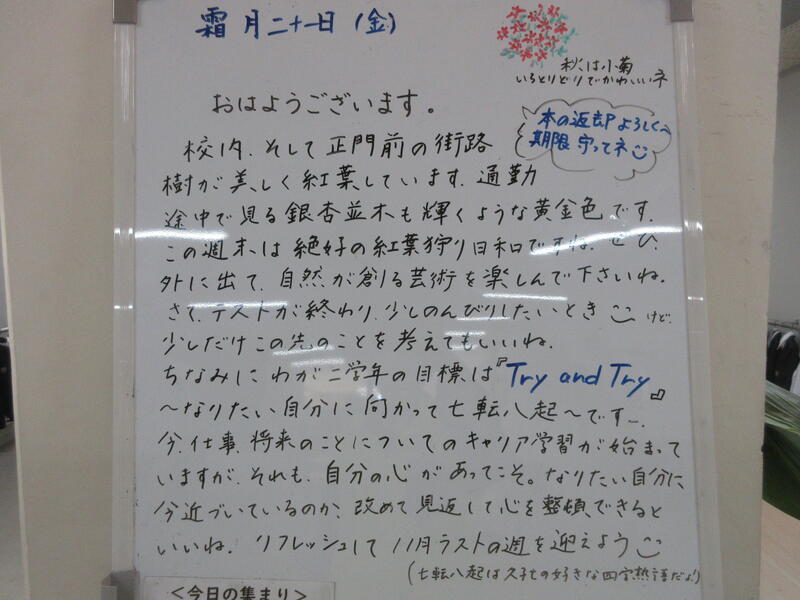 霜月二十一日(金)
秋は小菊
いろとりどりでかわいいネ
おはようございます。
本の返却よろしく、
期限守ってネ
校内、そして正門前の街路
樹が美しく紅葉しています。通勤
途中で見る銀杏並木も輝くような黄金色です。
この週末は絶好の紅葉狩り日和ですね。ぜひ、
外に出て、自然が創る芸術を楽しんで下さいね。
さて、テストが終わり、少しのんびりしたいとき けど、
少しだけこの先のことを考えてもいいね。
ちなみにわが二学年の目標は『Try and Try』
〜なりたい自分に向かって七転八起〜です。
今、仕事、将来のことについてのキャリア学習が始まって
いますが、それも、自分の心があってこそ。なりたい自分に
今近づいているのか、改めて見返して心を整頓できると
いいね。リフレッシュして11月ラストの週を迎えよう
(七転八起は の好きな四字熟語だよ!)
<今日の集まり>